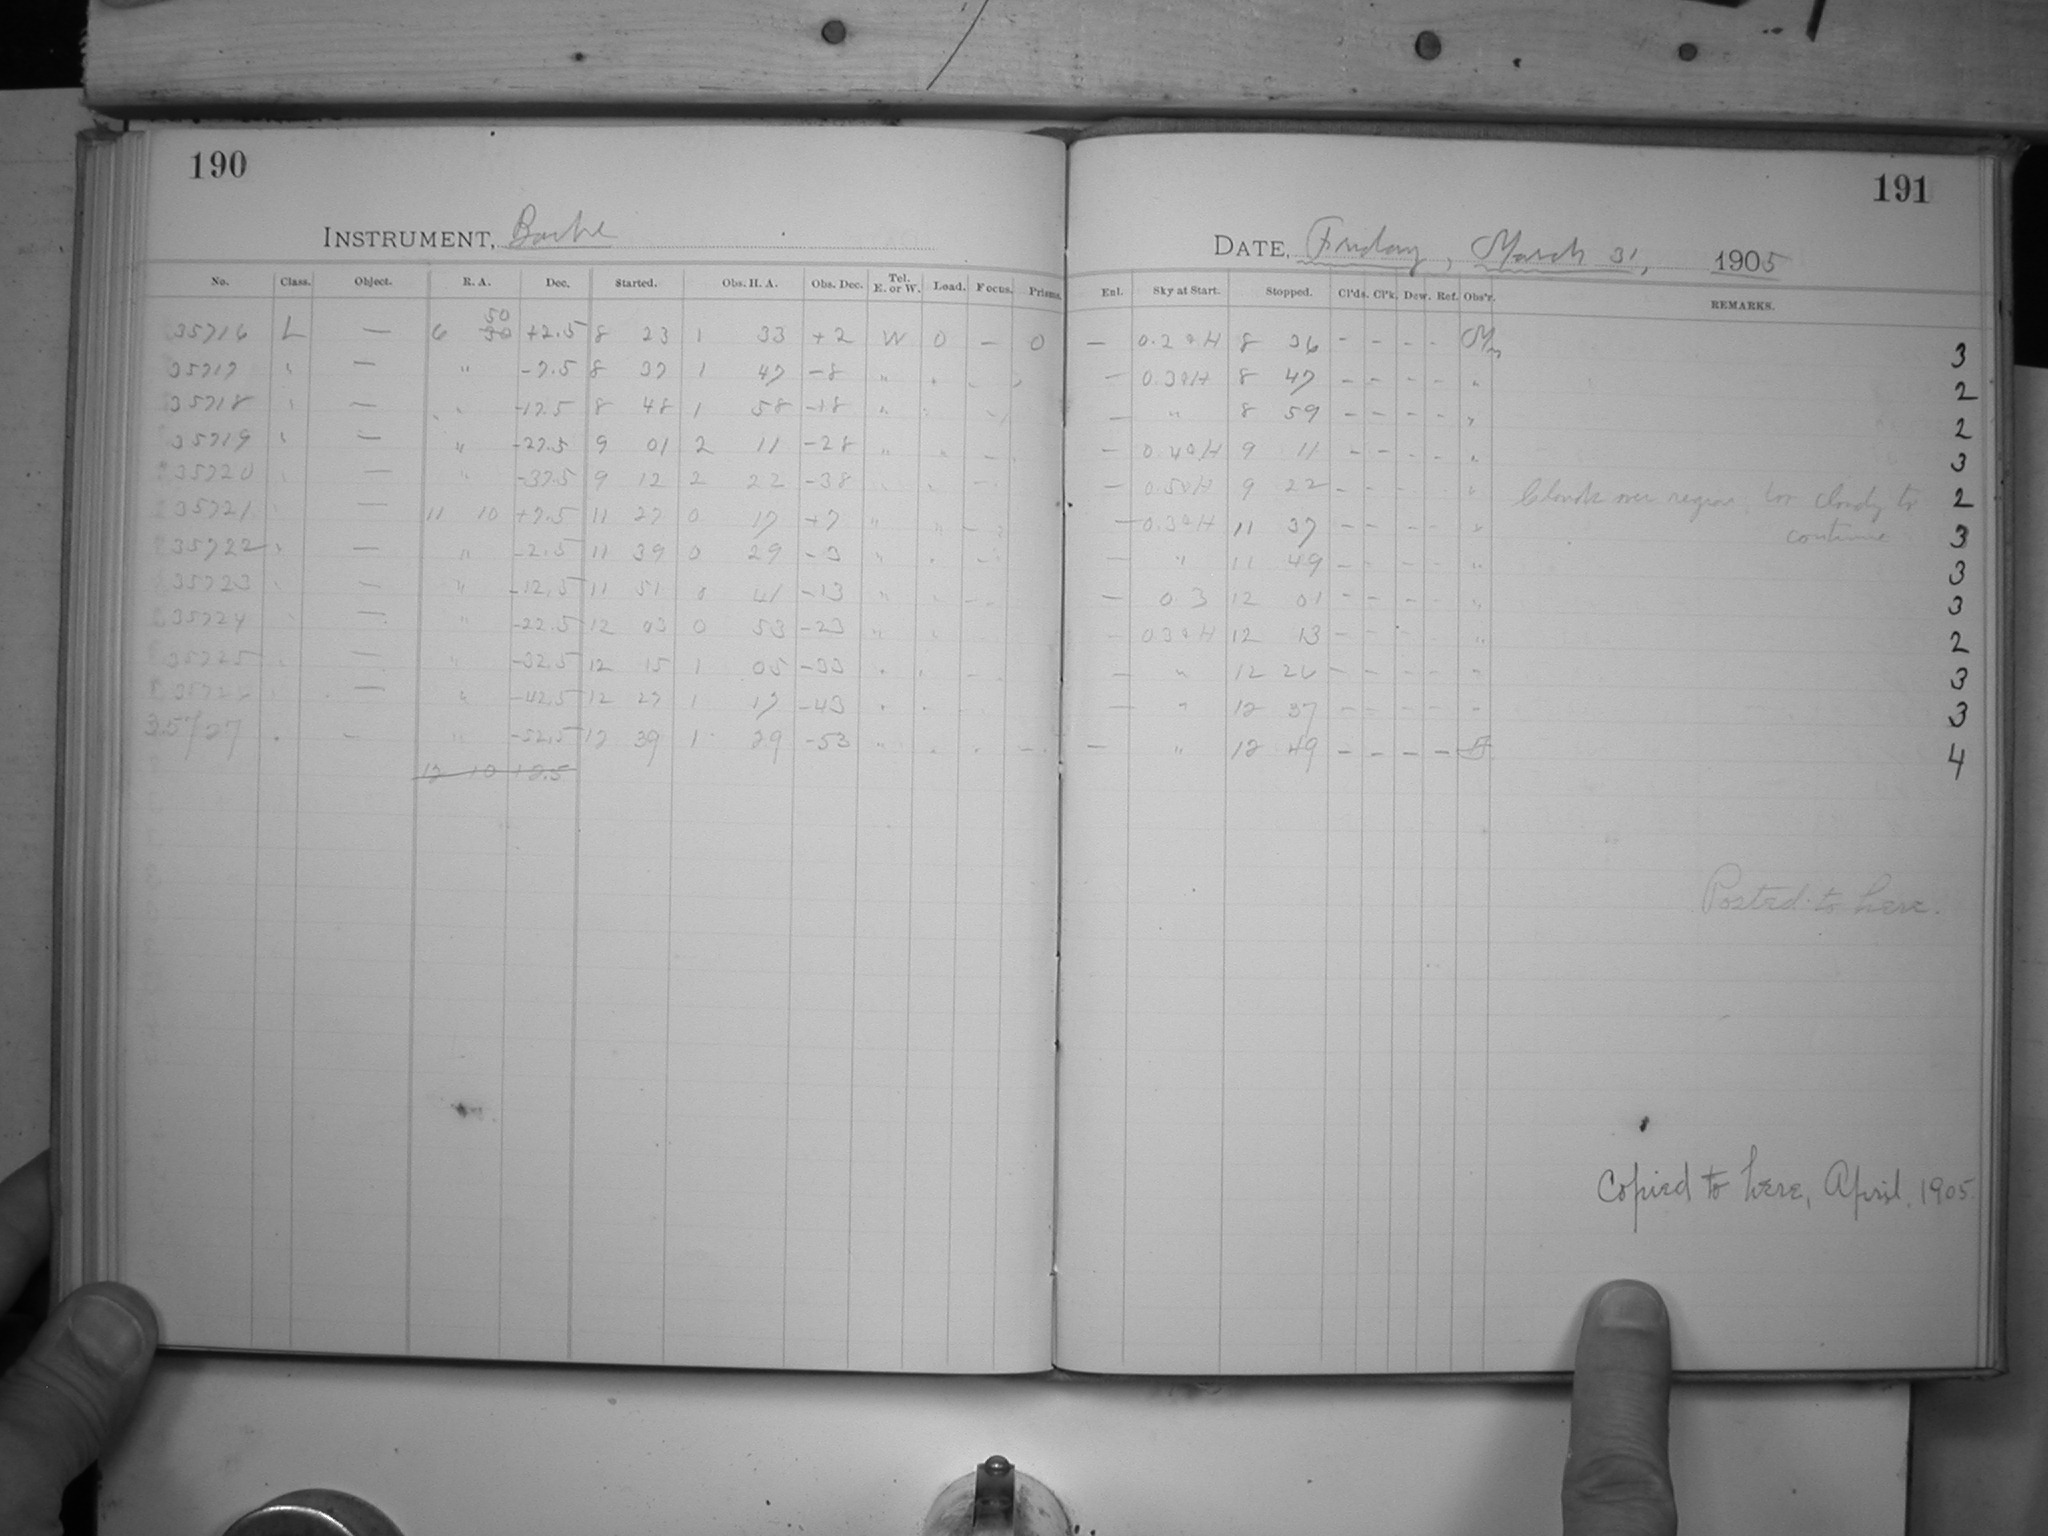 190
191
INSTRUMENT, Bache
DATE, Friday, March 31, 1905
No. Class. Object. R. A. Dec. Started. Obs. H. A. Obs. Dec. Tel. E. or W. Load. Focus. Prisms. Enl. Sky at Start. Stopped. Cl'ds. Cl'k. Dew. Ref. Obs'r. REMARKS.
50
35716 L — 6 30 +2.5 8 23 1 33 +2 W 0 — 0 — 8 36 - - - - 3
35717 " — " -7.5 8 37 1 47 -8 " — 8 47 - - - - " 2
35718 " — " -17.5 8 48 1 58 -18 " — " 8 59 - - - - " 2
35719 " — " -27.5 9 01 2 11 -28 " — 9 11 - - - - " 3
35720 " — " -37.5 9 12 2 22 -38 " — 9 22 - - - - " Clouds over region too cloudy to 2
continue
35721 " — 11 10 +7.5 11 27 0 17 +7 " — 11 37 - - - - " 3
35722 " — " -2.5 11 39 0 29 -3 " — " 11 49 - - - - " 3
35723 " — " -12.5 11 51 0 41 -13 " — 0.3 12 01 - - - - " 3
35724 " — " -22.5 12 03 0 53 -23 " — 12 13 - - - - " 2
35725 " — " -32.5 12 15 1 05 -33 " — " 12 26 - - - - " 3
35726 " — " -42.5 12 27 1 17 -43 " — " 12 37 - - - - " 3
35727 " — " -52.5 12 39 1 29 -53 " — " 12 49 - - - - 4
12 10 +2.5
Posted to here.
Copied to here, April, 1905.